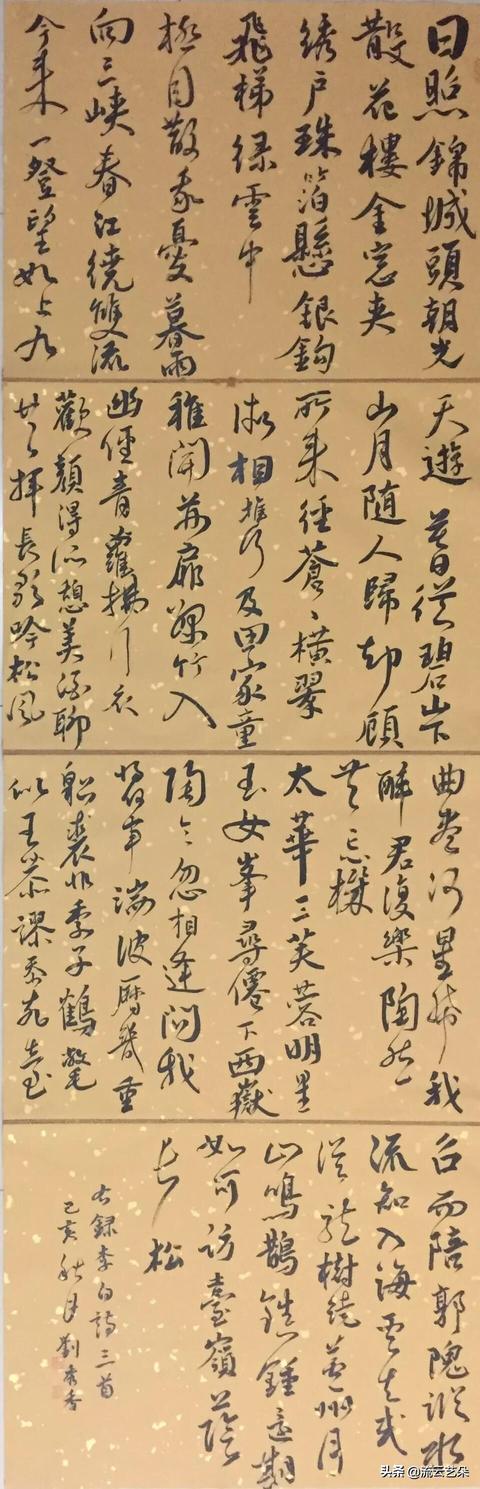 日照錦城頭朝光
散花樓金窓夾
綉户珠箔懸銀鉤
飛梯緑雲中
極目散我憂暮雨
向三峽春江繞雙流
今来一登望如上九
天遊暮從碧山下
山月随人歸却顧
所来徑蒼々橫翠
微相携及田家童
稚開荊扉綠竹入
幽徑青蘿拂行衣
歡顏得所憩美酒聊
共揮長歌吟松風
曲盡河星稀我
醉君復樂陶然
共忘機
太華三芙蓉明星
玉女峯尋僊下西嶽
陶令忽相逢問我
將何事湍波歷幾重
貂裘非季子鶴氅
似王恭謬忝燕臺
召而陪郭隗蹤水
流知入海雲去或
從龍樹繞蘆洲月
山鳴鵲鎮鍾還期
如可訪臺嶺蔭
長松
右録李白詩三首
己亥秋月劉秀香
头条 @流云艺朵